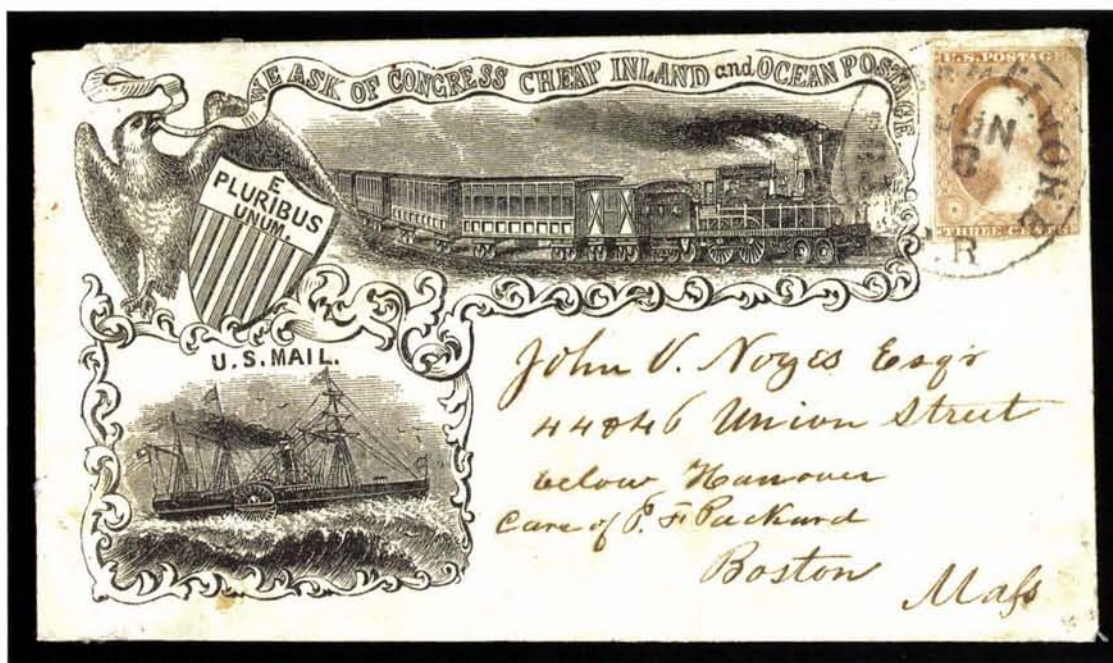 WE ASK OF CONGRESS CHEAP INLAND and OCEAN POSTAGE.
E
PLURIBUS
UNUM.
U.S. POSTAGE
JUN
3
THREE CENTS
R
U.S. MAIL.
John V. Noyes Esqr
44 & 46 Union Street
below Hanover
Care of P. F. Packard
Boston
Mass